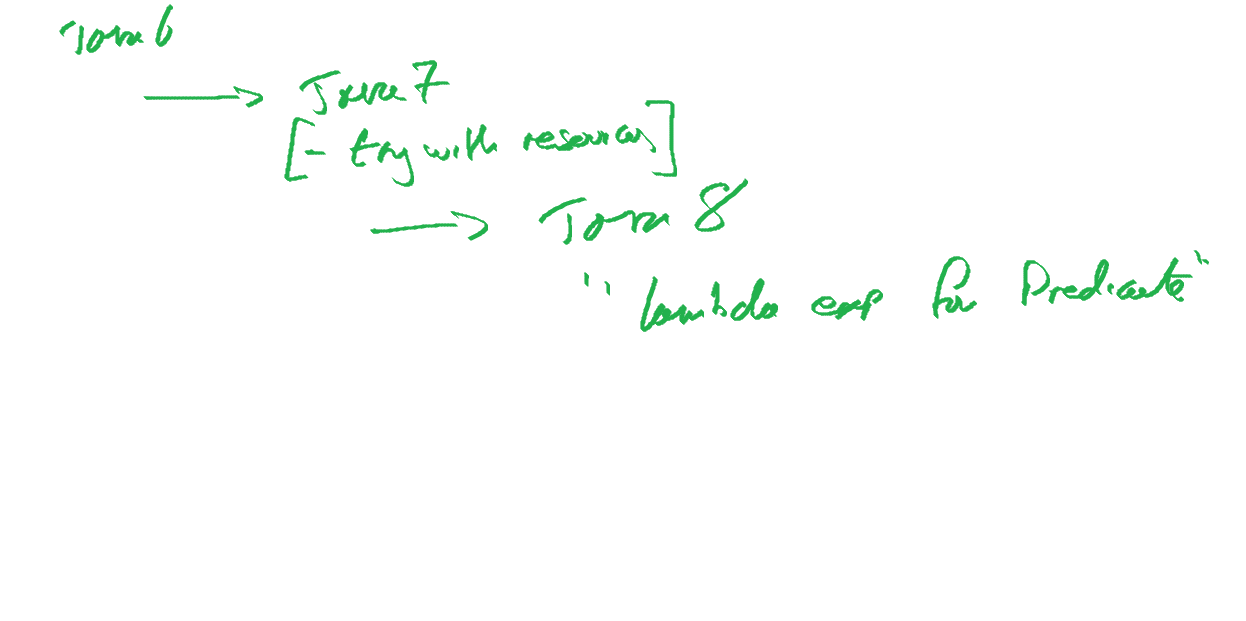 Java 6
→ Java 7
[- try with resources]
→ Java 8
"lambda exp for Predicate"